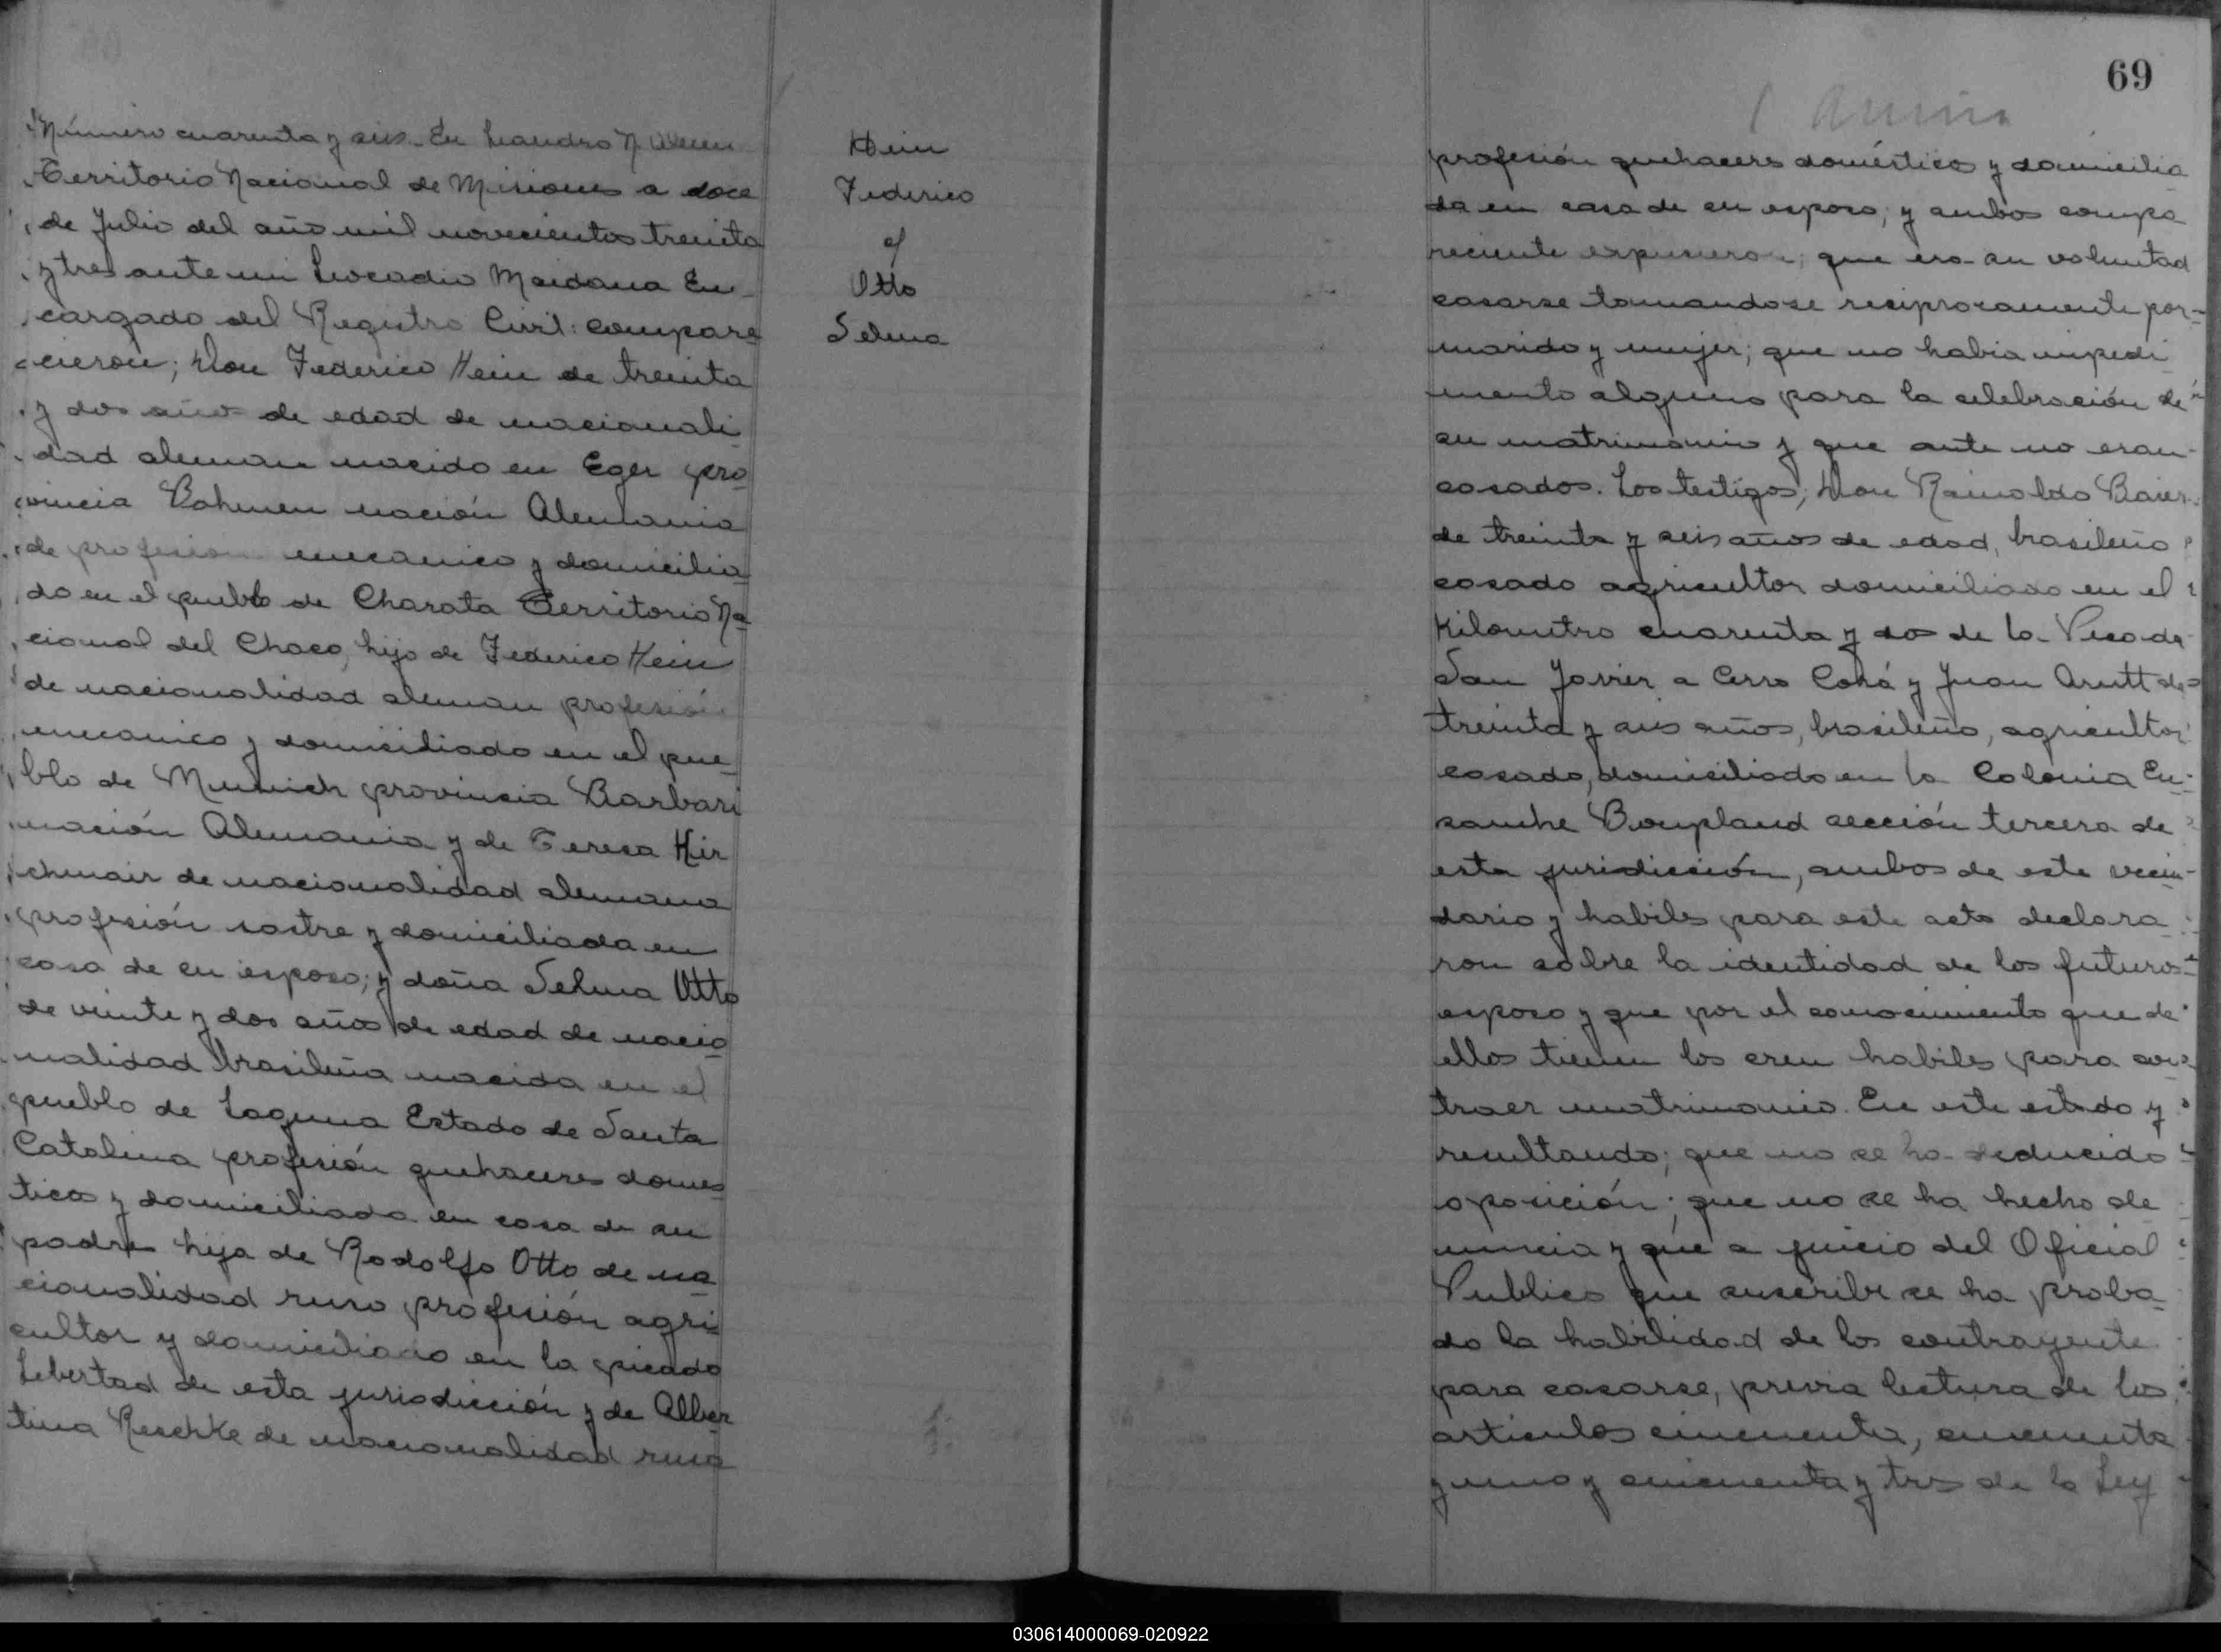 Número cuarenta y seis. En Leandro N Alem
Territorio Nacional de Misiones a doce
de Julio del año mil novecientos treinta
y tres ante mi Leocadio Maidana En
cargado del Registro Civil: compare
cieron; Don Federico Hein de treinta
y dos años de edad de nacionali
dad aleman nacido en Eger pro
vincia Bohmen nación Alemania
de profesion mecanico y domicilia
do en el pueblo de Charata Territorio Na
cional del Chaco, hijo de Federico Hein
de nacionalidad aleman profesión
mecanico y domiciliado en el pue
blo de Munich provincia Barbari
nación Alemania y de Teresa Kir
chmair de nacionalidad alemana
profesión sastre y domiciliada en
casa de su esposo; y doña Selma Otto
de veinte y dos años de edad de nacio
nalidad brasileña nacida en el
pueblo de Laguna Estado de Santa
Catalina profesión quehaceres domes
ticos y domiciliada en casa de su
padre hija de Rodolfo Otto de na
cionalidad ruso profesión agri
cultor y domiciliado en la picada
Libertad de esta jurisdicción y de Alber
tina Reschke de nacionalidad rusa
Hein
Federico
c/
Otto
Selma
69
profesión quehacers doméstico y domicilia
da en casa de su esposo; y ambos compa
reciente expusieron; que era su voluntad
casarse tomandose resiprocamente por
marido y mujer; que no habia impedi
mento alguno para la celebración de
su matrimonio y que ante no eran
casados. Los testigos; Don Rainoldo Baier
de treinta y seis años de edad, brasileño
casado agricultor domiciliado en el
Kilometro cuarenta y dos de la Picada
San Javier a Cerro Corá y Juan Arutt de
treinta y seis años, brasileño, agricultor
casado, domiciliado en la Colonia En
sanche Bonpland sección tercera de
esta jurisdicción, ambos de este vecin
dario y habiles para este acto declara
ron sobre la identidad de los futuros
esposo y que por el conocimiento que de
ellos tienen los creen habiles para con
traer matrimonio. En este estado y
resultando; que no se ha deducido
oposición; que no se ha hecho de
nuncia y que a juicio del Oficial
Publico que suscribe se ha proba
do la habilidad de los contrayente
para casarse, previa lectura de los
articulos cincuenta, cincuenta
y uno y cincuenta y tres de la Ley
030614000069-020922